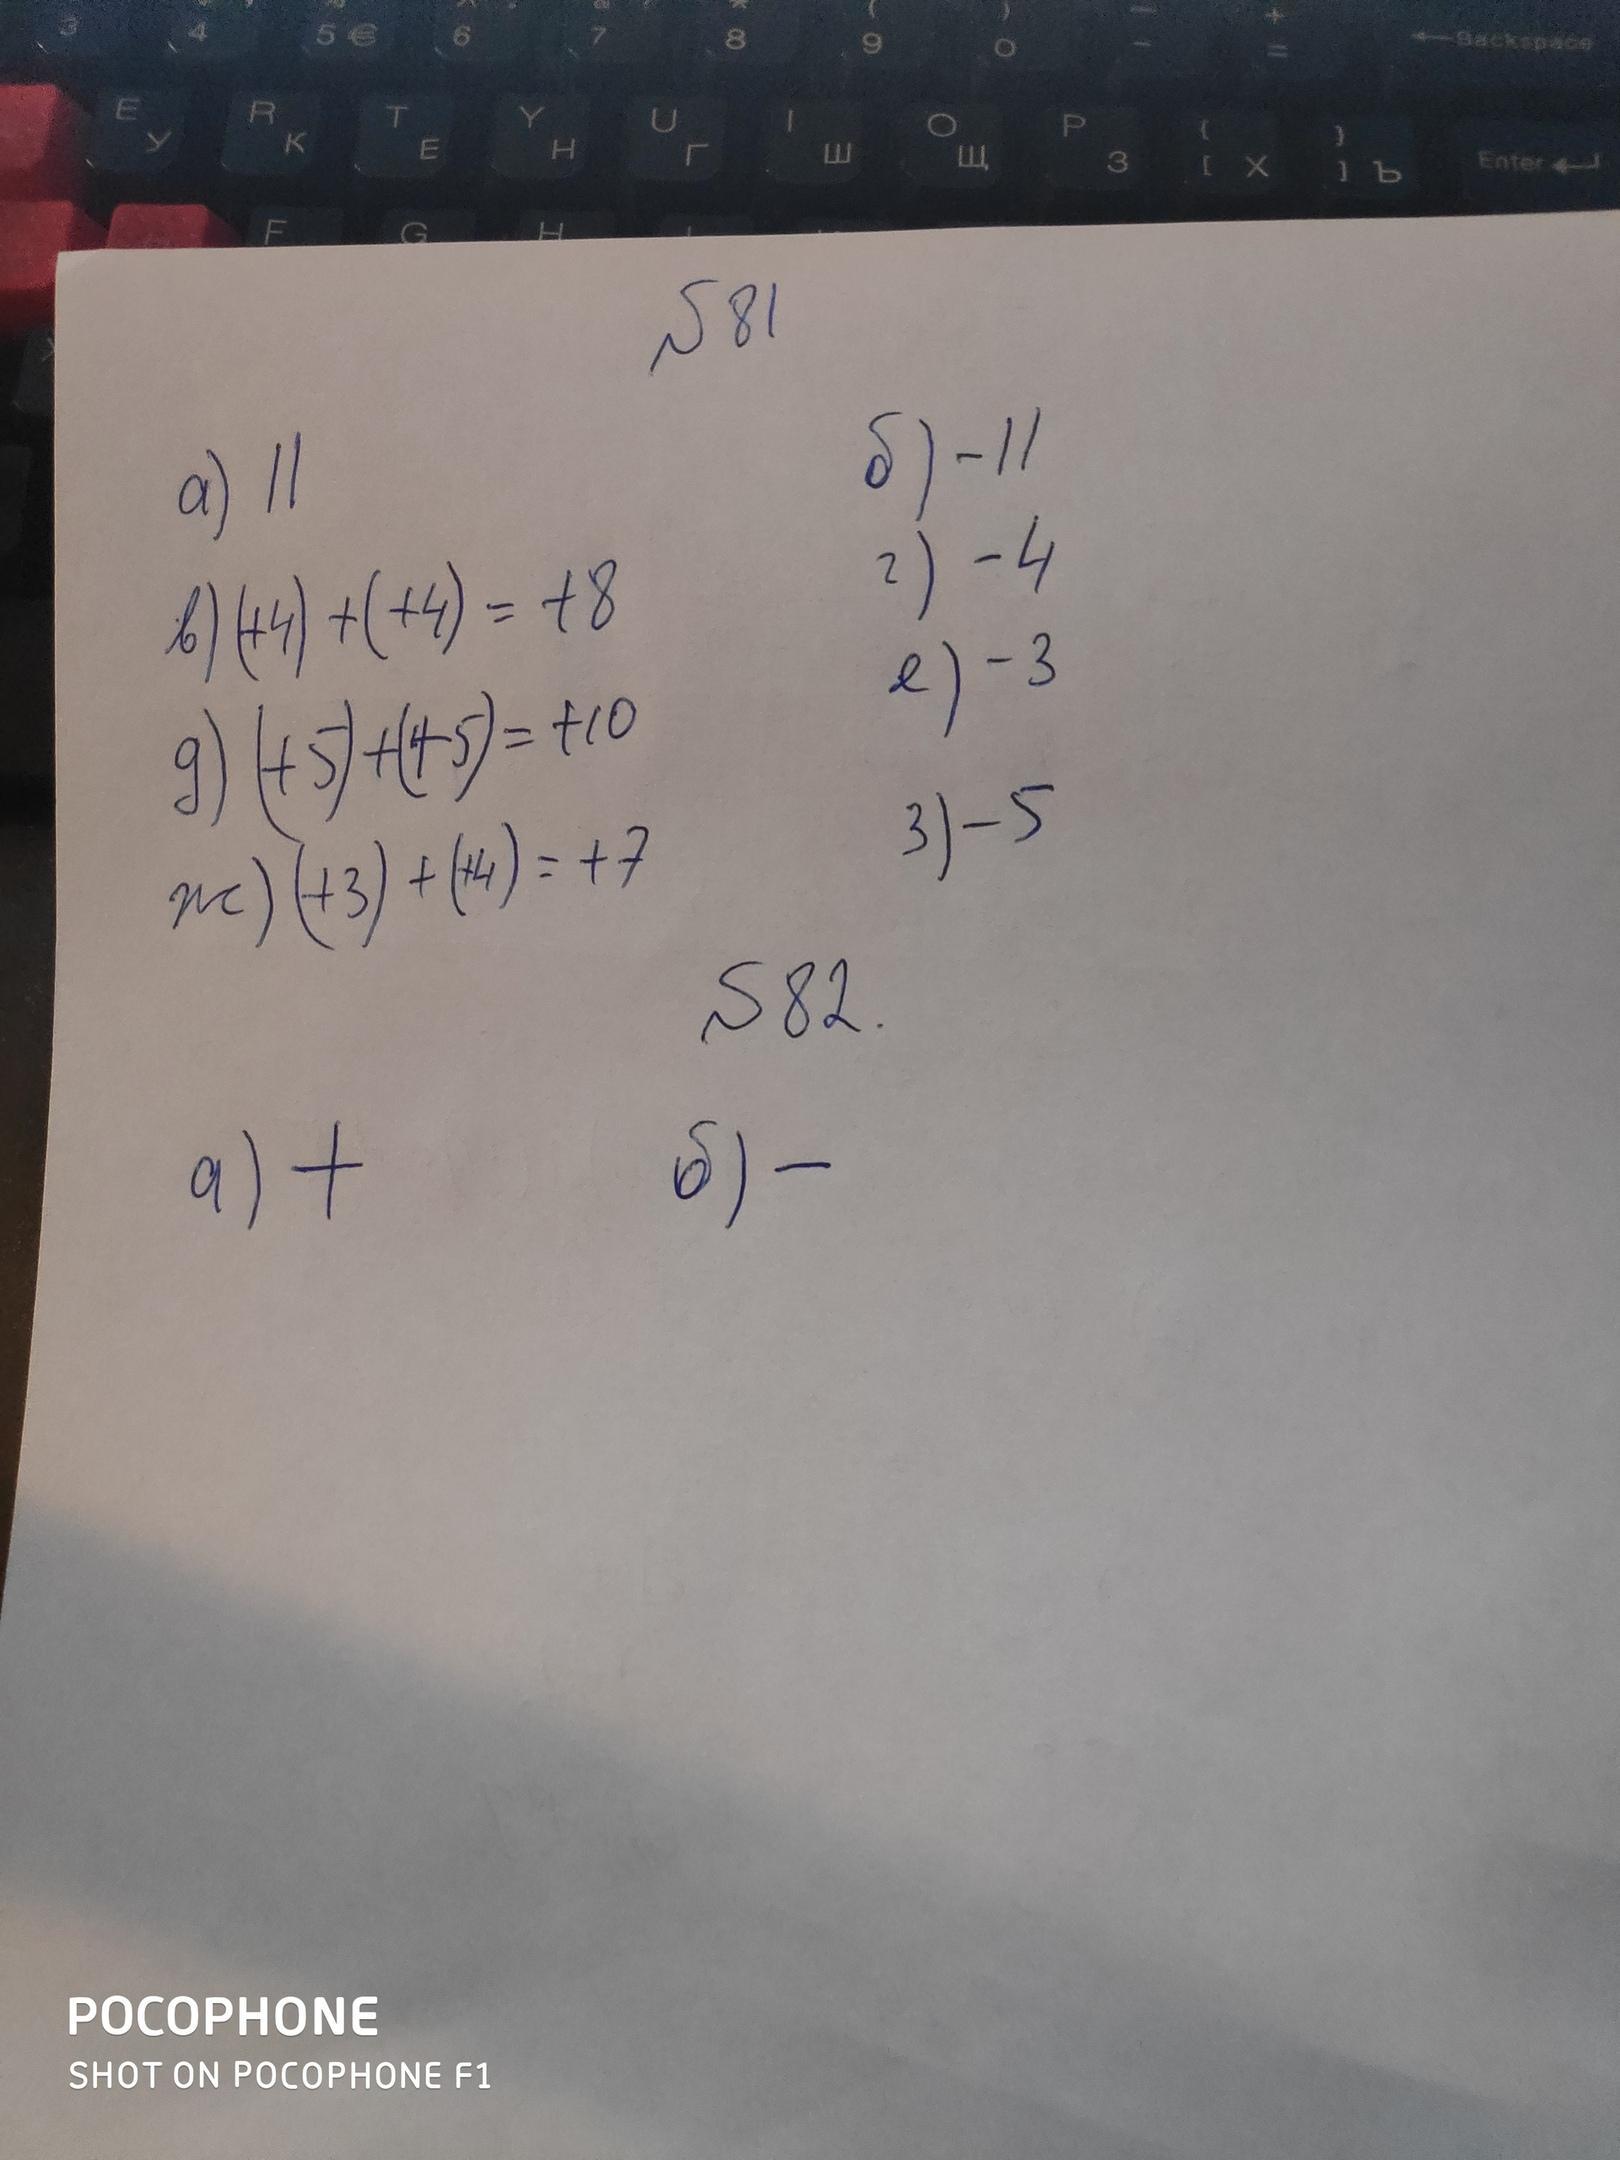 3 4 5 € 6 7 8 9 0 - = ←Backspace
E У R К T Е Y Н U Г I Ш O Щ P З { [ Х } ] Ъ Enter
F G H
№81
а) 11 б) -11
в) (+4) + (+4) = +8 г) -4
д) (+5)+(+5)= +10 е) -3
ж) (+3) + (+4) = +7 з) -5
№82.
а) + б) -
POCOPHONE
SHOT ON POCOPHONE F1